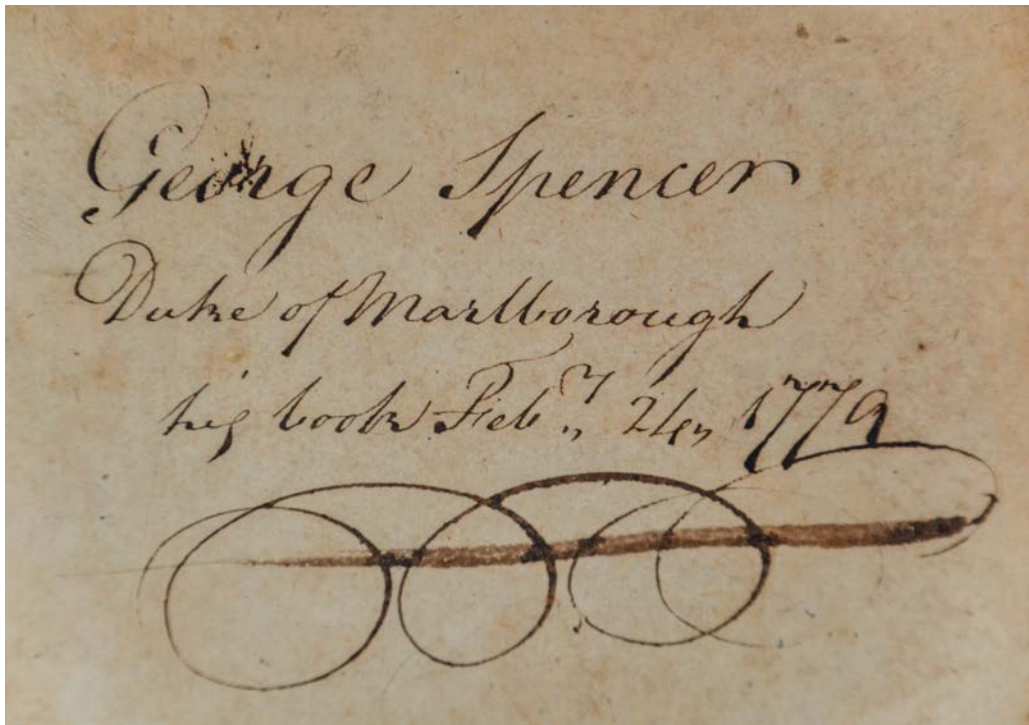 George Spencer
Duke of Marlborough
his book Feb.y 24, 1779